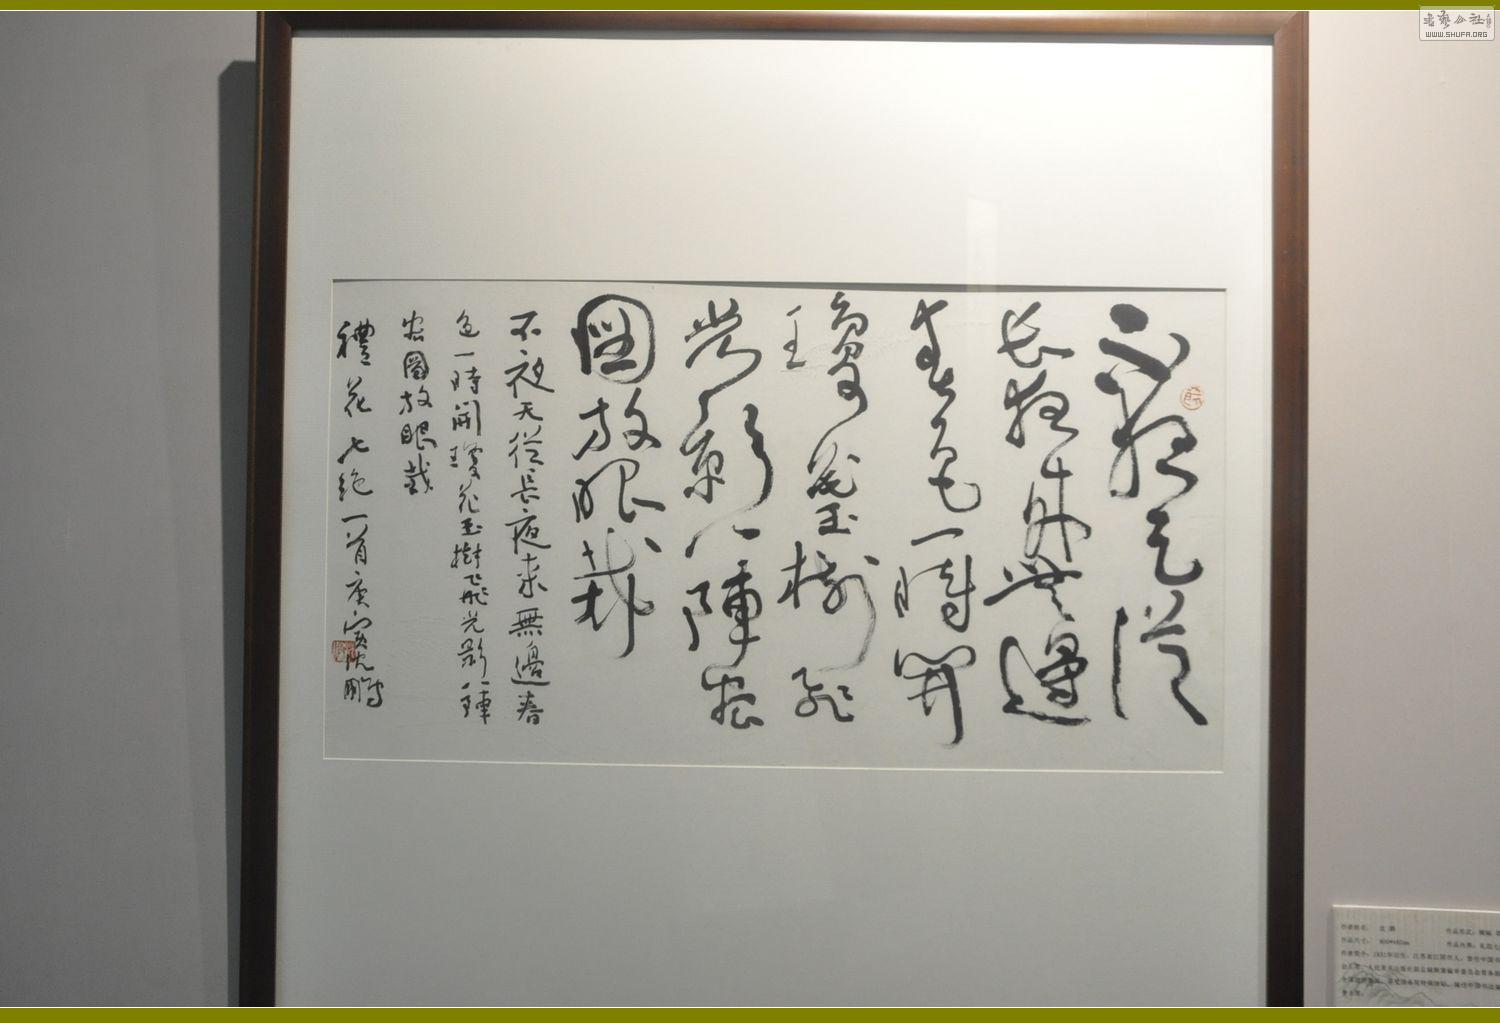 不夜天從
長夜來無邊
春色一時開
瓊花玉樹飛
光影一陣宏
圖放眼裁
不夜天從長夜來無邊春
色一時開瓊花玉樹飛光影一陣
宏圖放眼裁
禮花七絕一首庚寅沈鵬
WWW.SHUFA.ORG